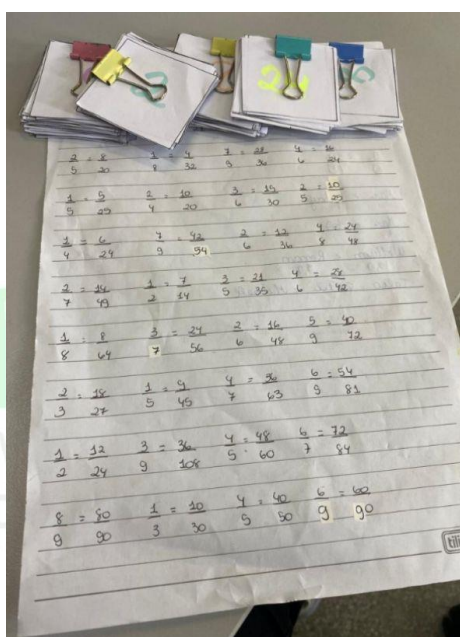 2/5 = 8/20 1/8 = 4/32 7/9 = 28/36 4/6 = 16/24
1/5 = 5/25 2/4 = 10/20 3/6 = 15/30 2/5 = 10/25
1/4 = 6/24 7/9 = 42/54 2/6 = 12/36 4/8 = 24/48
2/7 = 14/49 1/2 = 7/14 3/5 = 21/35 4/6 = 28/42
1/8 = 8/64 3/7 = 24/56 2/6 = 16/48 5/9 = 40/72
2/3 = 18/27 1/5 = 9/45 4/7 = 36/63 6/9 = 54/81
1/2 = 12/24 3/9 = 36/108 4/5 = 48/60 6/7 = 72/84
8/9 = 80/90 1/3 = 10/30 4/5 = 40/50 6/9 = 60/90